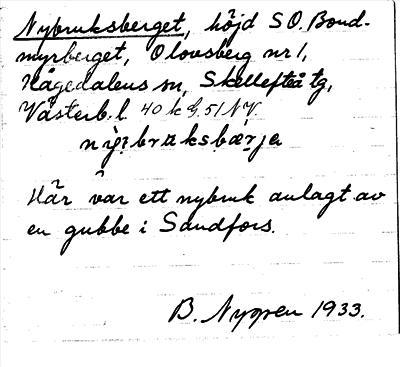 Nybruksberget, höjd SO. Bond-
myrberget, Olovsberg nr 1,
Hågedalens sn, Skellefteå tg,
Västerb. l. 40 k
Här var ett nybruk anlagt av
en gubbe i Sandfors.
B. Nygren 1933.